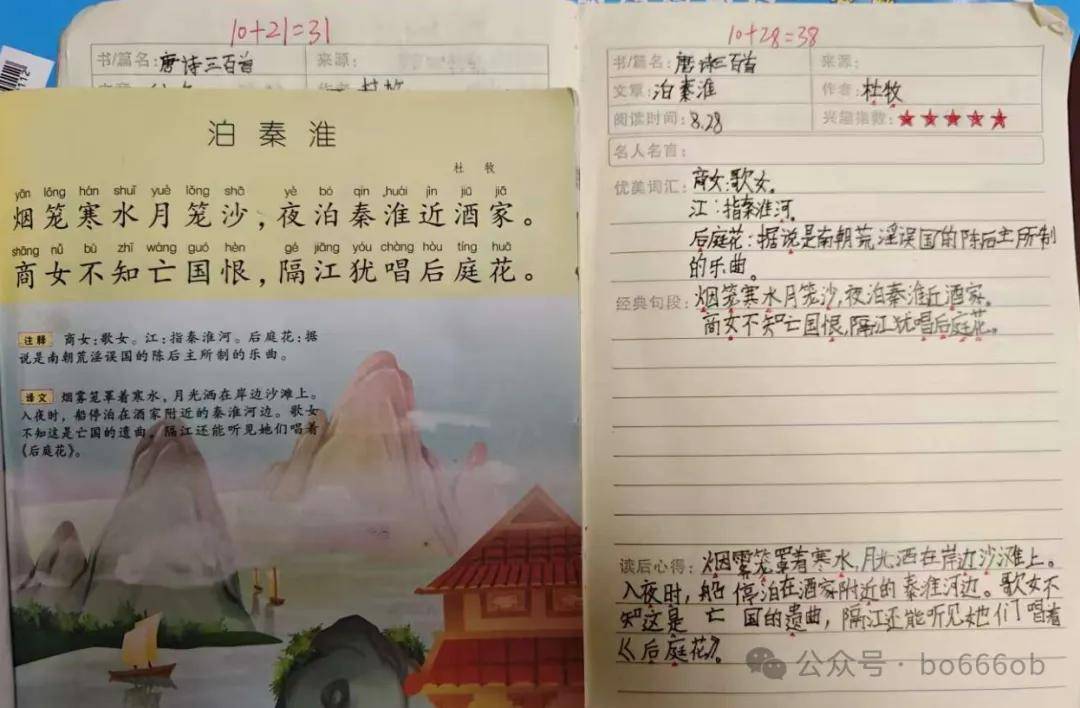 10+21=31
书/篇名:唐诗三百首 来源:
泊秦淮
杜牧
yān lóng hán shuǐ yuè lóng shā yè bó qín huái jìn jiǔ jiā
烟笼寒水月笼沙,夜泊秦淮近酒家。
shāng nǚ bù zhī wáng guó hèn gé jiāng yóu chàng hòu tíng huā
商女不知亡国恨,隔江犹唱后庭花。
注释 商女:歌女。江:指秦淮河。后庭花:据
说是南朝荒淫误国的陈后主所制的乐曲。
译文 烟雾笼罩着寒水,月光洒在岸边沙滩上。
入夜时,船停泊在酒家附近的秦淮河边。歌女
不知这是亡国的遗曲,隔江还能听见她们唱着
《后庭花》。
10+28=38
书/篇名:唐诗三百首 来源:
文章:泊秦淮 作者:杜牧
阅读时间:8.28 兴趣指数:★★★★★
名人名言:
优美词汇:商女:歌女。
江:指秦淮河。
后庭花:据说是南朝荒淫误国的陈后主所制
的乐曲。
经典句段:烟笼寒水月笼沙,夜泊秦淮近酒家。
商女不知亡国恨,隔江犹唱后庭花。
读后心得:烟雾笼罩着寒水,月光洒在岸边沙滩上。
入夜时,船停泊在酒家附近的秦淮河边。歌女不
知这是亡国的遗曲,隔江还能听见她们唱着
《后庭花》。
公众号·bo666ob